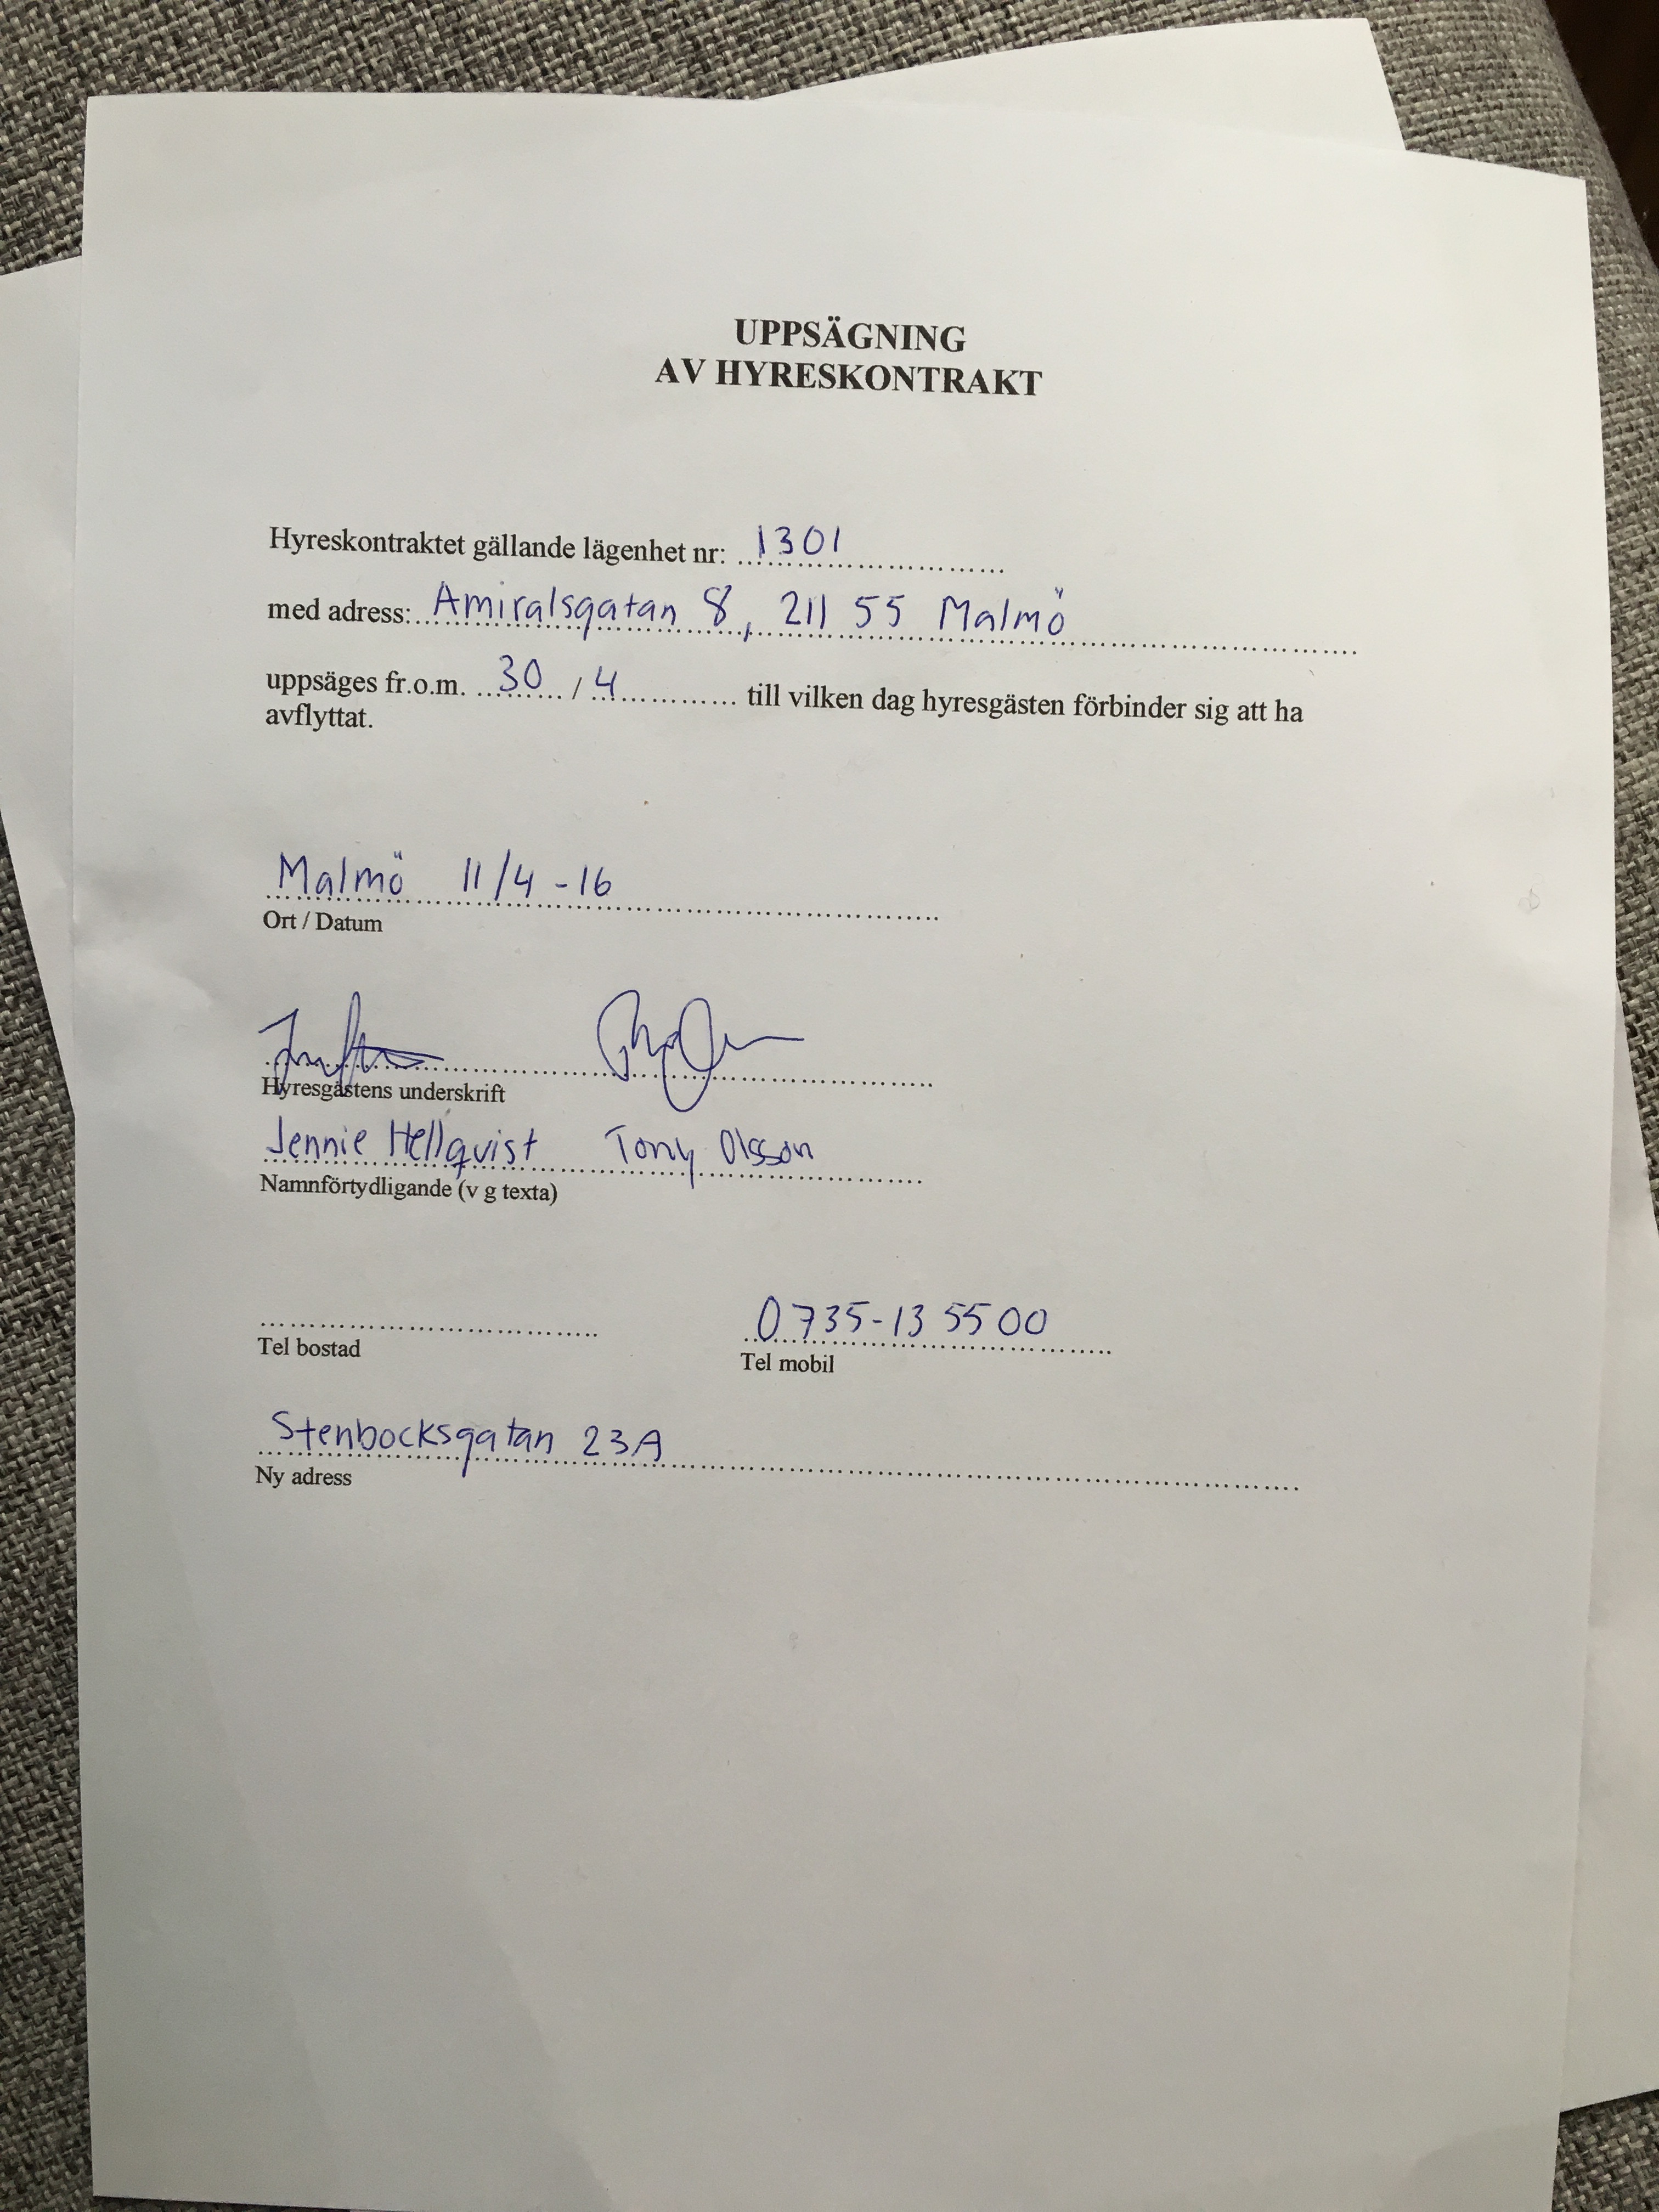 UPPSÄGNING
AV HYRESKONTRAKT
Hyreskontraktet gällande lägenhet nr: 1301
med adress: Amiralsgatan 8, 211 55 Malmö
uppsäges fr.o.m. 30 / 4 till vilken dag hyresgästen förbinder sig att ha
avflyttat.
Malmö 11/4 -16
Ort / Datum
Hyresgästens underskrift
Jennie Hellqvist Tony Olsson
Namnförtydligande (v g texta)
0735-13 55 00
Tel bostad Tel mobil
Stenbocksgatan 23A
Ny adress